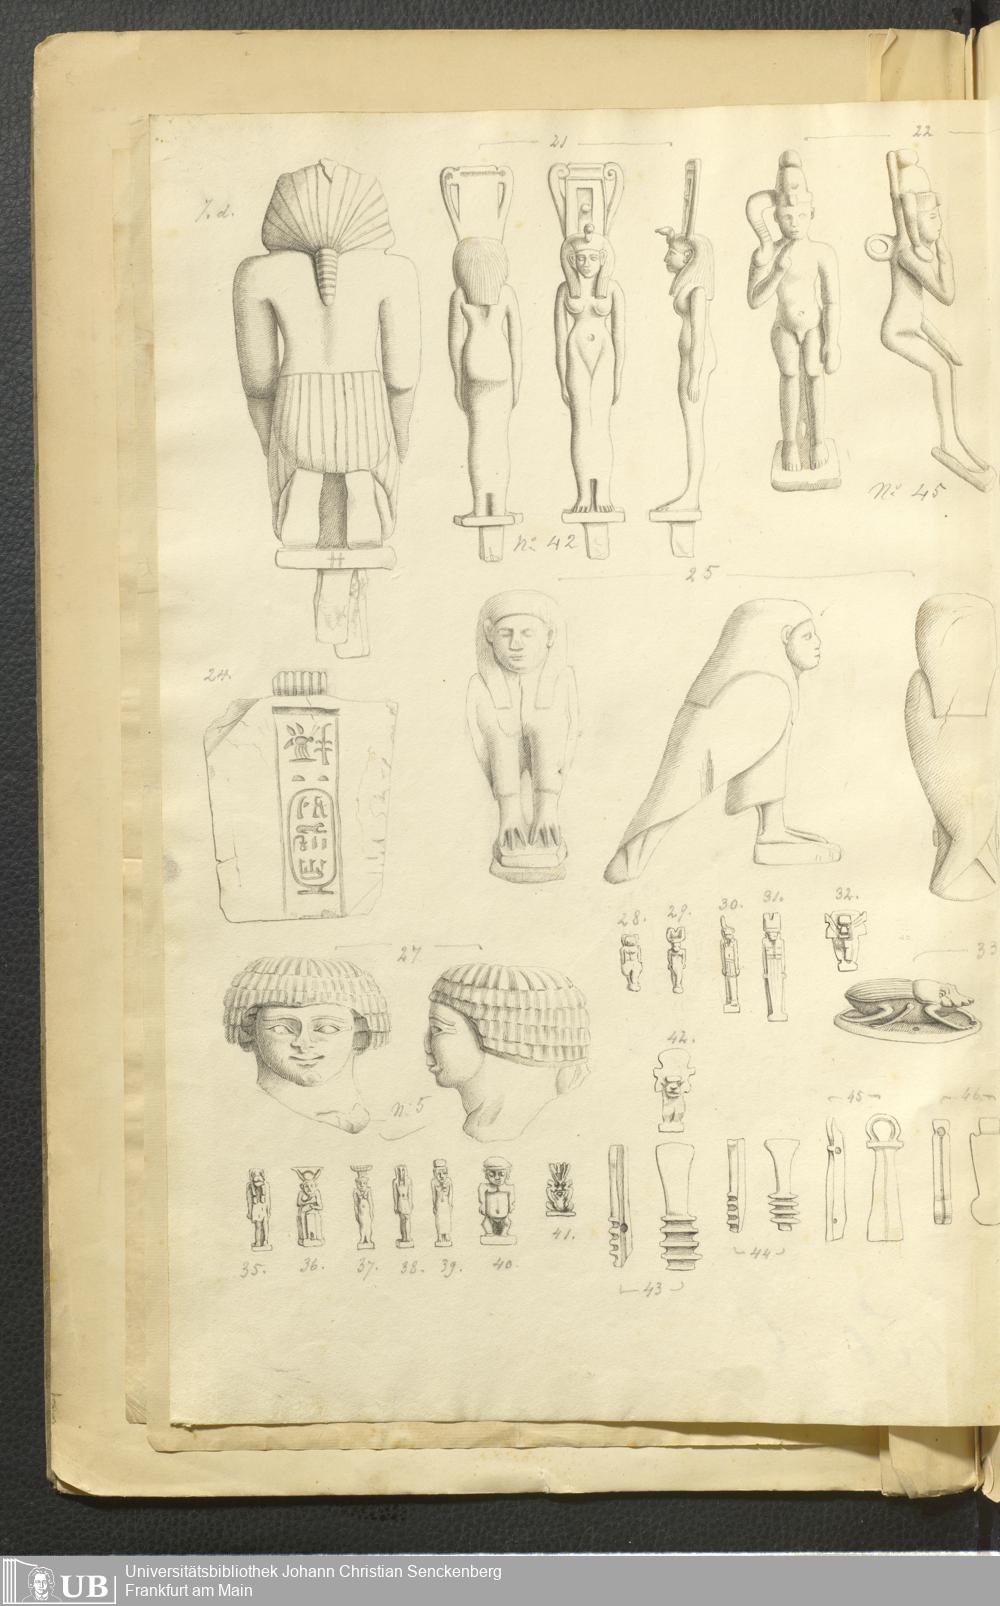 21
22
7. d.
No 42
No 45
25
24.
28.
29.
30.
31.
32.
33
27
No 5
42.
45
46
35.
36.
37.
38.
39.
40.
41.
43
44
Universitätsbibliothek Johann Christian Senckenberg
Frankfurt am Main
UB